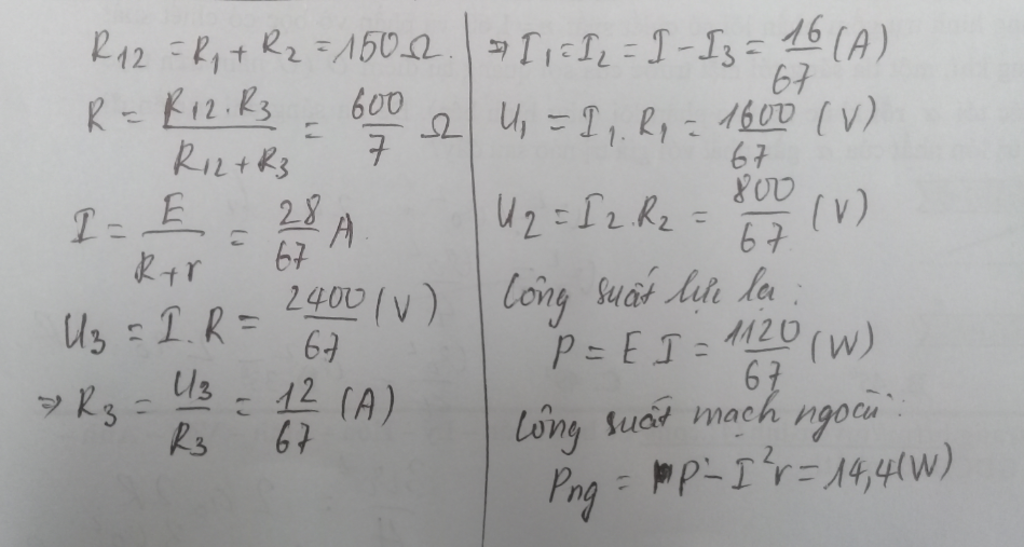 R12 = R1 + R2 = 150 Ω
R = R12 . R3 / R12 + R3 = 600/7 Ω
I = E / R + r = 28/67 A
U3 = I . R = 2400/67 (V)
⇒ R3 = U3/R3 = 12/67 (A)
⇒ I1 = I2 = I - I3 = 16/67 (A)
U1 = I1 . R1 = 1600/67 (V)
U2 = I2 . R2 = 800/67 (V)
Công suất lực lạ :
P = E I = 1120/67 (W)
Công suất mạch ngoài :
Png = P - I²r = 14,4 (W)